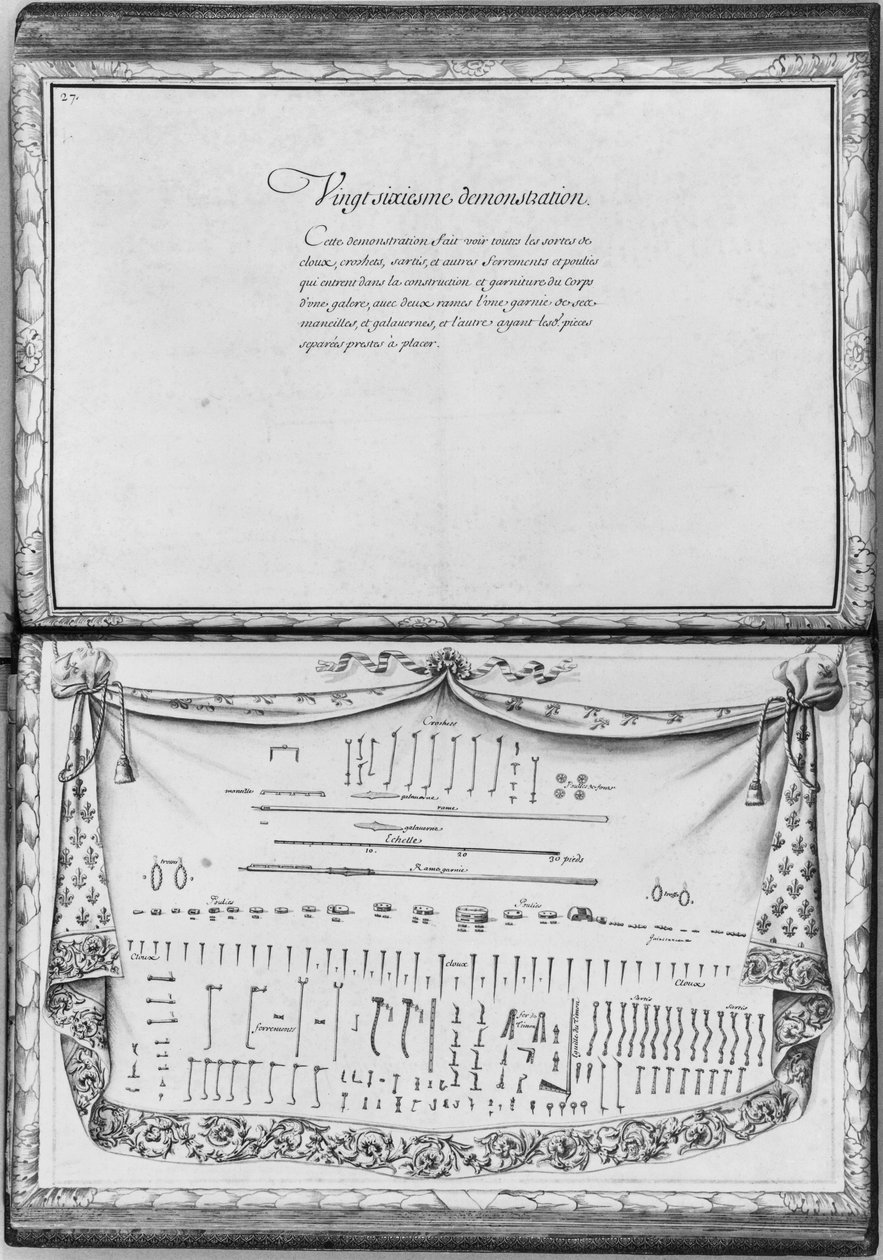 27.
Vingt sixiesme demonstration.
Cette demonstration fait voir toutes les sortes de
cloux, crochets, sartis, et autres ferrements et poulies
qui entrent dans la construction et garniture du Corps
d'vne galere, auec deux rames l'vne garnie de ses
maneilles, et galauernes, et l'autre ayant lesd. pieces
separées prestes à placer.
Crochets
maneille
galauerne
rame
galauerne
Echelle
10.
20
30 pieds
Rame garnie
Poulies
Poulies
Cloux
cloux
Cloux
ferrements
fer de
Timon
Sartis
Sartis